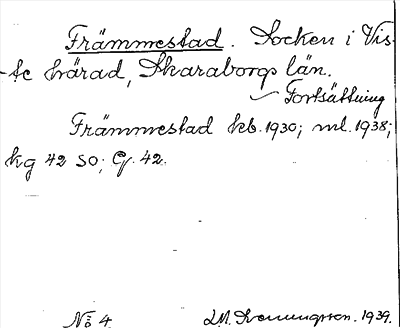 Främmestad. Socken i Vis-
-te härad, Skaraborgs län.
Fortsättning
Främmestad kb. 1930; ml. 1938;
kg 42 SO; G. 42.
No 4 1939.